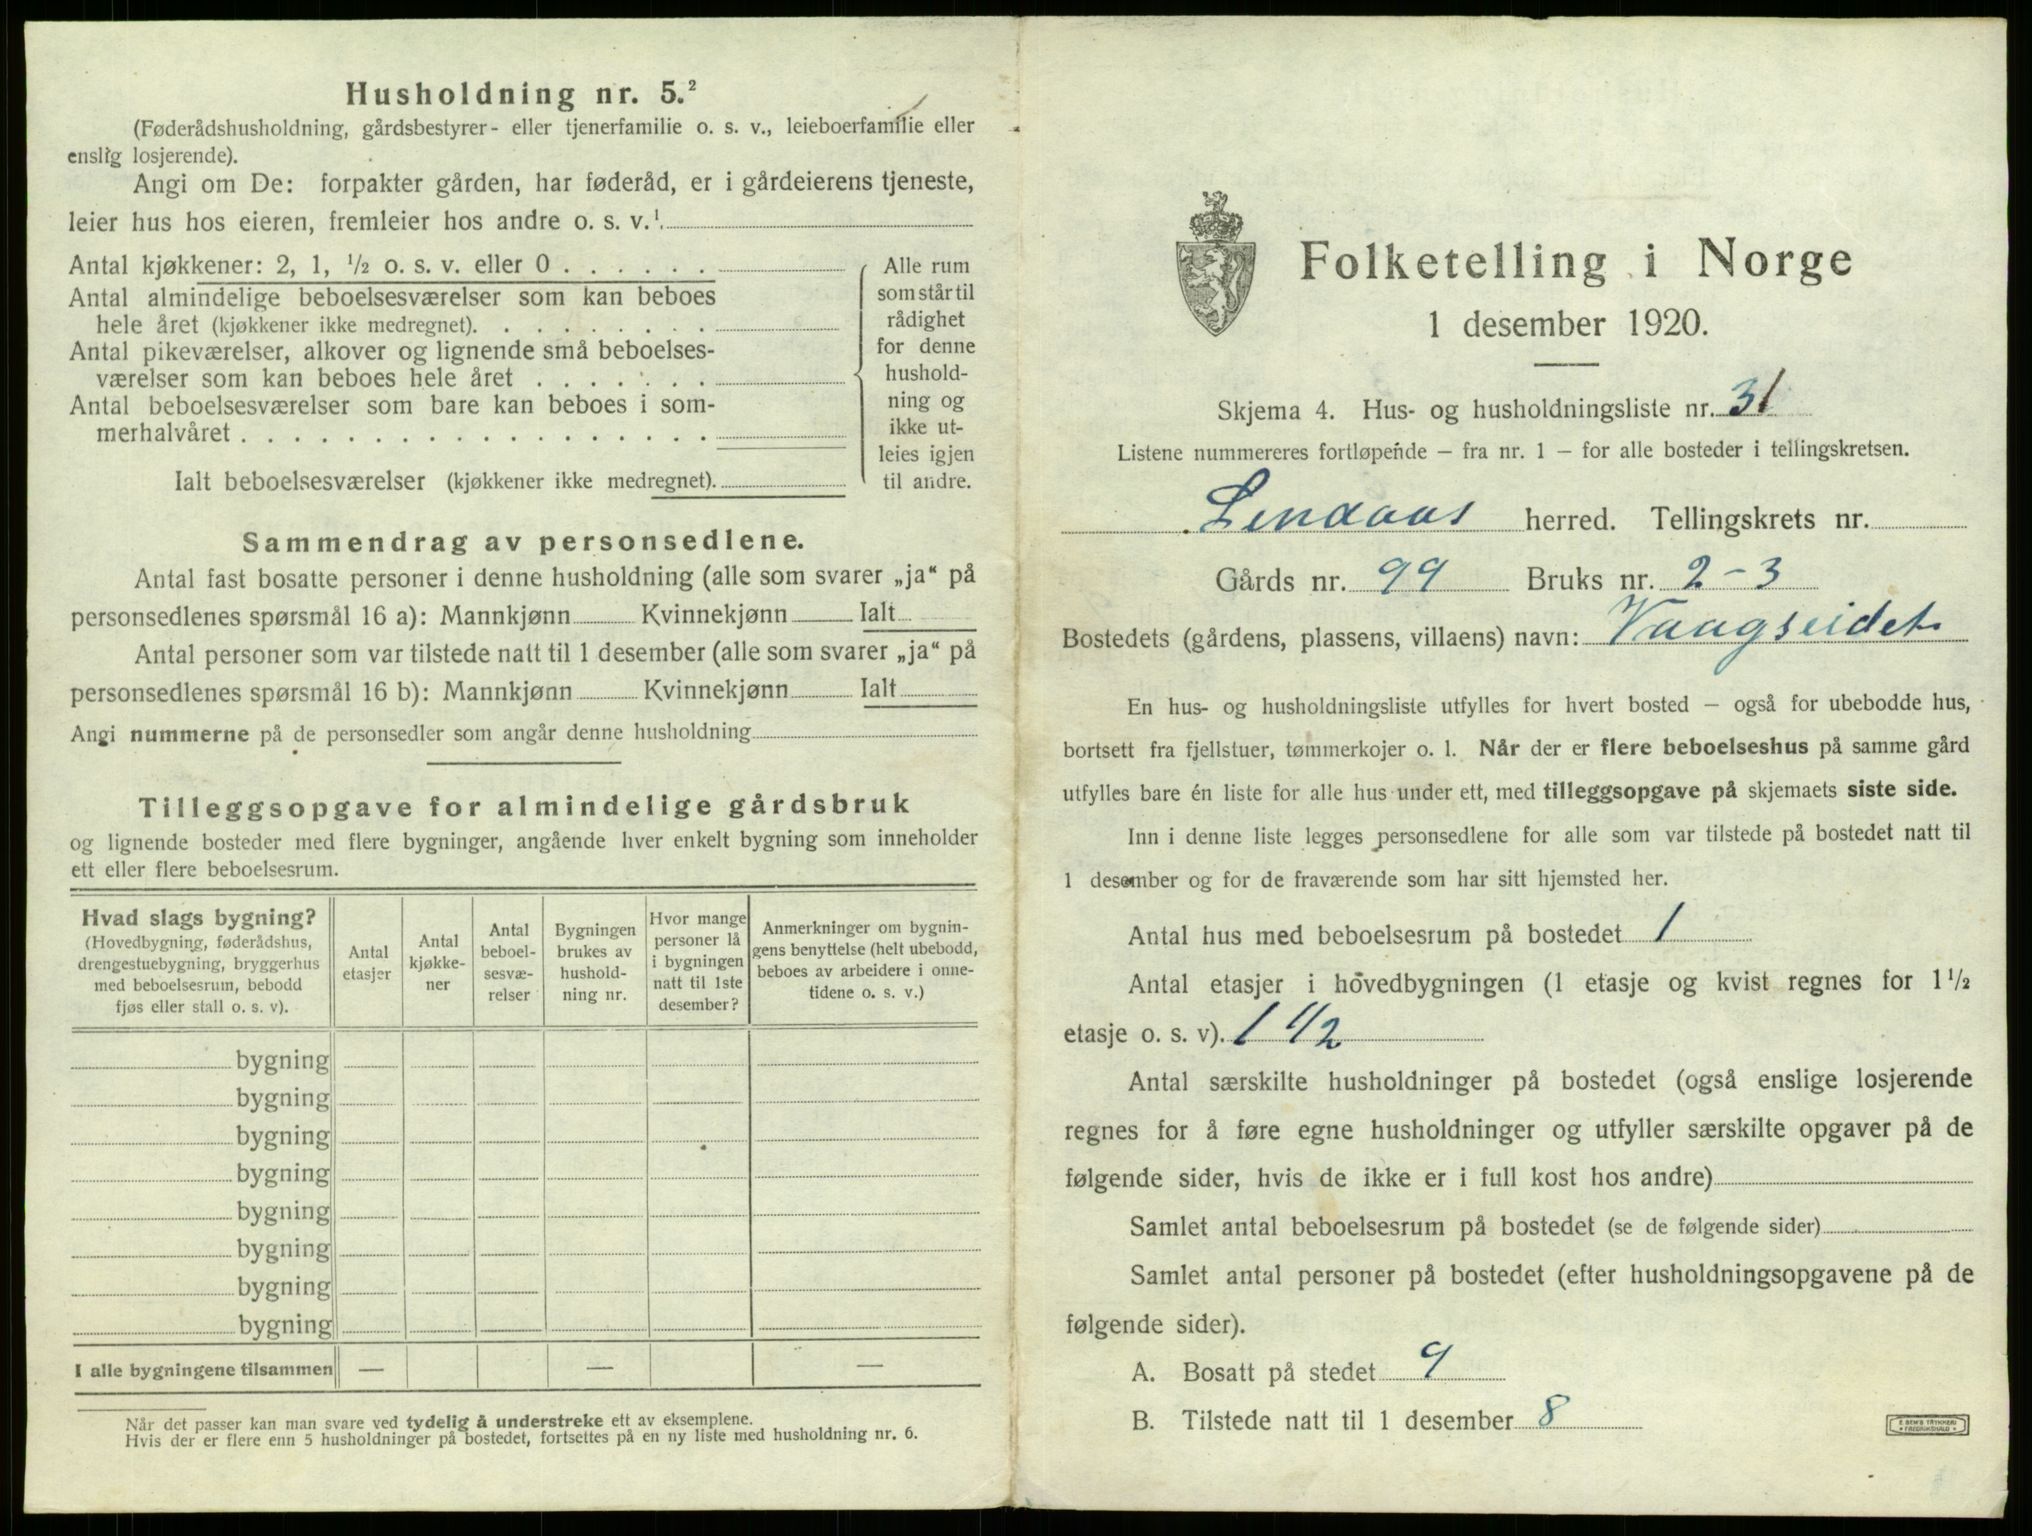 Husholdning nr. 5.²
(Føderådshusholdning, gårdsbestyrer- eller tjenerfamilie o. s. v., leieboerfamilie eller
enslig losjerende).
Angi om De: forpakter gården, har føderåd, er i gårdeierens tjeneste,
leier hus hos eieren, fremleier hos andre o. s. v.¹
Antal kjøkkener: 2, 1, ½ o. s. v. eller 0
Antal almindelige beboelsesværelser som kan beboes
hele året (kjøkkener ikke medregnet).
Antal pikeværelser, alkover og lignende små beboelses-
værelser som kan beboes hele året
Antal beboelsesværelser som bare kan beboes i som-
merhalvåret
Ialt beboelsesværelser (kjøkkener ikke medregnet).
Alle rum
som står til
rådighet
for denne
hushold-
ning og
ikke ut-
leies igjen
til andre.
Sammendrag av personsedlene.
Antal fast bosatte personer i denne husholdning (alle som svarer „ja“ på
personsedlenes spørsmål 16 a): Mannkjønn Kvinnekjønn Ialt
Antal personer som var tilstede natt til 1 desember (alle som svarer „ja“ på
personsedlenes spørsmål 16 b): Mannkjønn Kvinnekjønn Ialt
Angi nummerne på de personsedler som angår denne husholdning
Tilleggsopgave for almindelige gårdsbruk
og lignende bosteder med flere bygninger, angående hver enkelt bygning som inneholder
ett eller flere beboelsesrum.
Hvad slags bygning?
(Hovedbygning, føderådshus,
drengestuebygning, bryggerhus
med beboelsesrum, bebodd
fjøs eller stall o. s. v).
Antal
etasjer
Antal
kjøkke-
ner
Antal
beboel-
sesvæ-
relser
Bygningen
brukes av
hushold-
ning nr.
Hvor mange
personer lå
i bygningen
natt til 1ste
desember?
Anmerkninger om bygnin-
gens benyttelse (helt ubebodd,
beboes av arbeidere i onne-
tidene o. s. v.)
bygning
bygning
bygning
bygning
bygning
bygning
bygning
bygning
I alle bygningene tilsammen — — —
Når det passer kan man svare ved tydelig å understreke ett av eksemplene.
Hvis der er flere enn 5 husholdninger på bostedet, fortsettes på en ny liste med husholdning nr. 6.
Folketelling i Norge
1 desember 1920.
Skjema 4. Hus- og husholdningsliste nr. 31
Listene nummereres fortløpende – fra nr. 1 – for alle bosteder i tellingskretsen.
Lendaas herred. Tellingskrets nr.
Gårds nr. 99 Bruks nr. 2-3
Bostedets (gårdens, plassens, villaens) navn: Vaagseidet
En hus- og husholdningsliste utfylles for hvert bosted – også for ubebodde hus,
bortsett fra fjellstuer, tømmerkojer o. l. Når der er flere beboelseshus på samme gård
utfylles bare én liste for alle hus under ett, med tilleggsopgave på skjemaets siste side.
Inn i denne liste legges personsedlene for alle som var tilstede på bostedet natt til
1 desember og for de fraværende som har sitt hjemsted her.
Antal hus med beboelsesrum på bostedet 1
Antal etasjer i hovedbygningen (1 etasje og kvist regnes for 1½
etasje o. s. v). 1 1/2
Antal særskilte husholdninger på bostedet (også enslige losjerende
regnes for å føre egne husholdninger og utfyller særskilte opgaver på de
følgende sider, hvis de ikke er i full kost hos andre)
Samlet antal beboelsesrum på bostedet (se de følgende sider)
Samlet antal personer på bostedet (efter husholdningsopgavene på de
følgende sider).
A. Bosatt på stedet 9
B. Tilstede natt til 1 desember 8
E. SEM'S TRYKKERI
FREDRIKSHALD